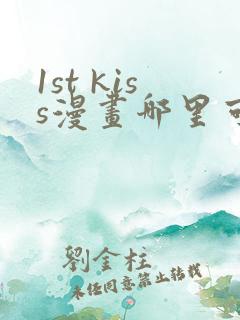 1st kis
s漫畫哪里可
劉金柱
未经同意禁止转载